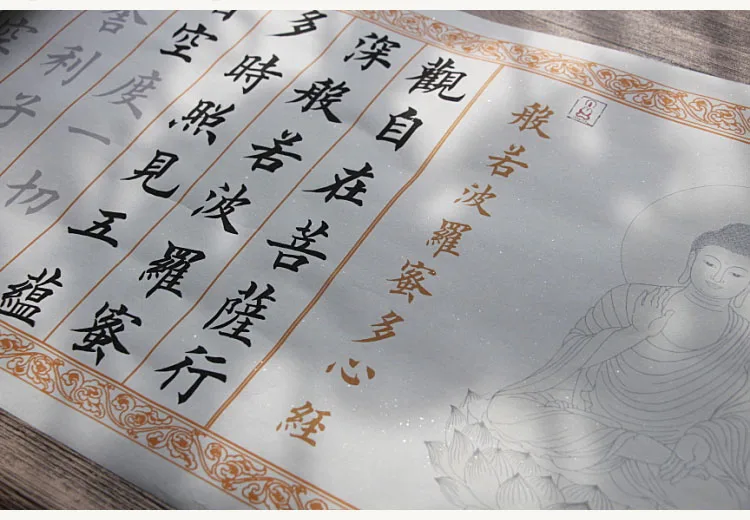 般若波羅蜜多心經
觀自在菩薩行
深般若波羅蜜
多時照見五蘊
皆空度一切
舍利子
空